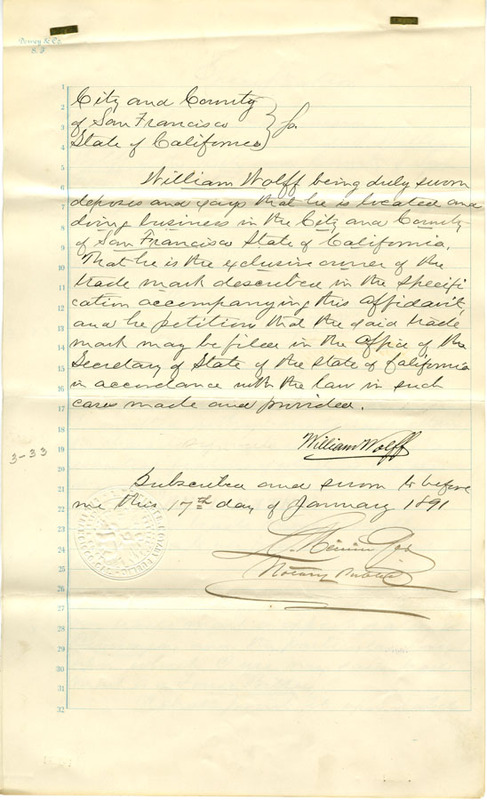 Dewey & Co.
S.F.
City and County
of San Francisco } ss.
State of California
William Wolff being duly sworn
deposes and says that he is located and
doing business in the City and County
of San Francisco State of California.
That he is the exclusive owner of the
trade mark described in the specifi
cation accompanying this affidavit,
and he petitions that the said trade
mark may be filed in the office of the
Secretary of State of the State of California
in accordance with the law in such
cases made and provided.
William Wolff
3-33
Subscribed and sworn to before
me this 17th day of January 1891
Notary Public
1
2
3
4
5
6
7
8
9
10
11
12
13
14
15
16
17
18
19
20
21
22
23
24
25
26
27
28
29
30
31
32